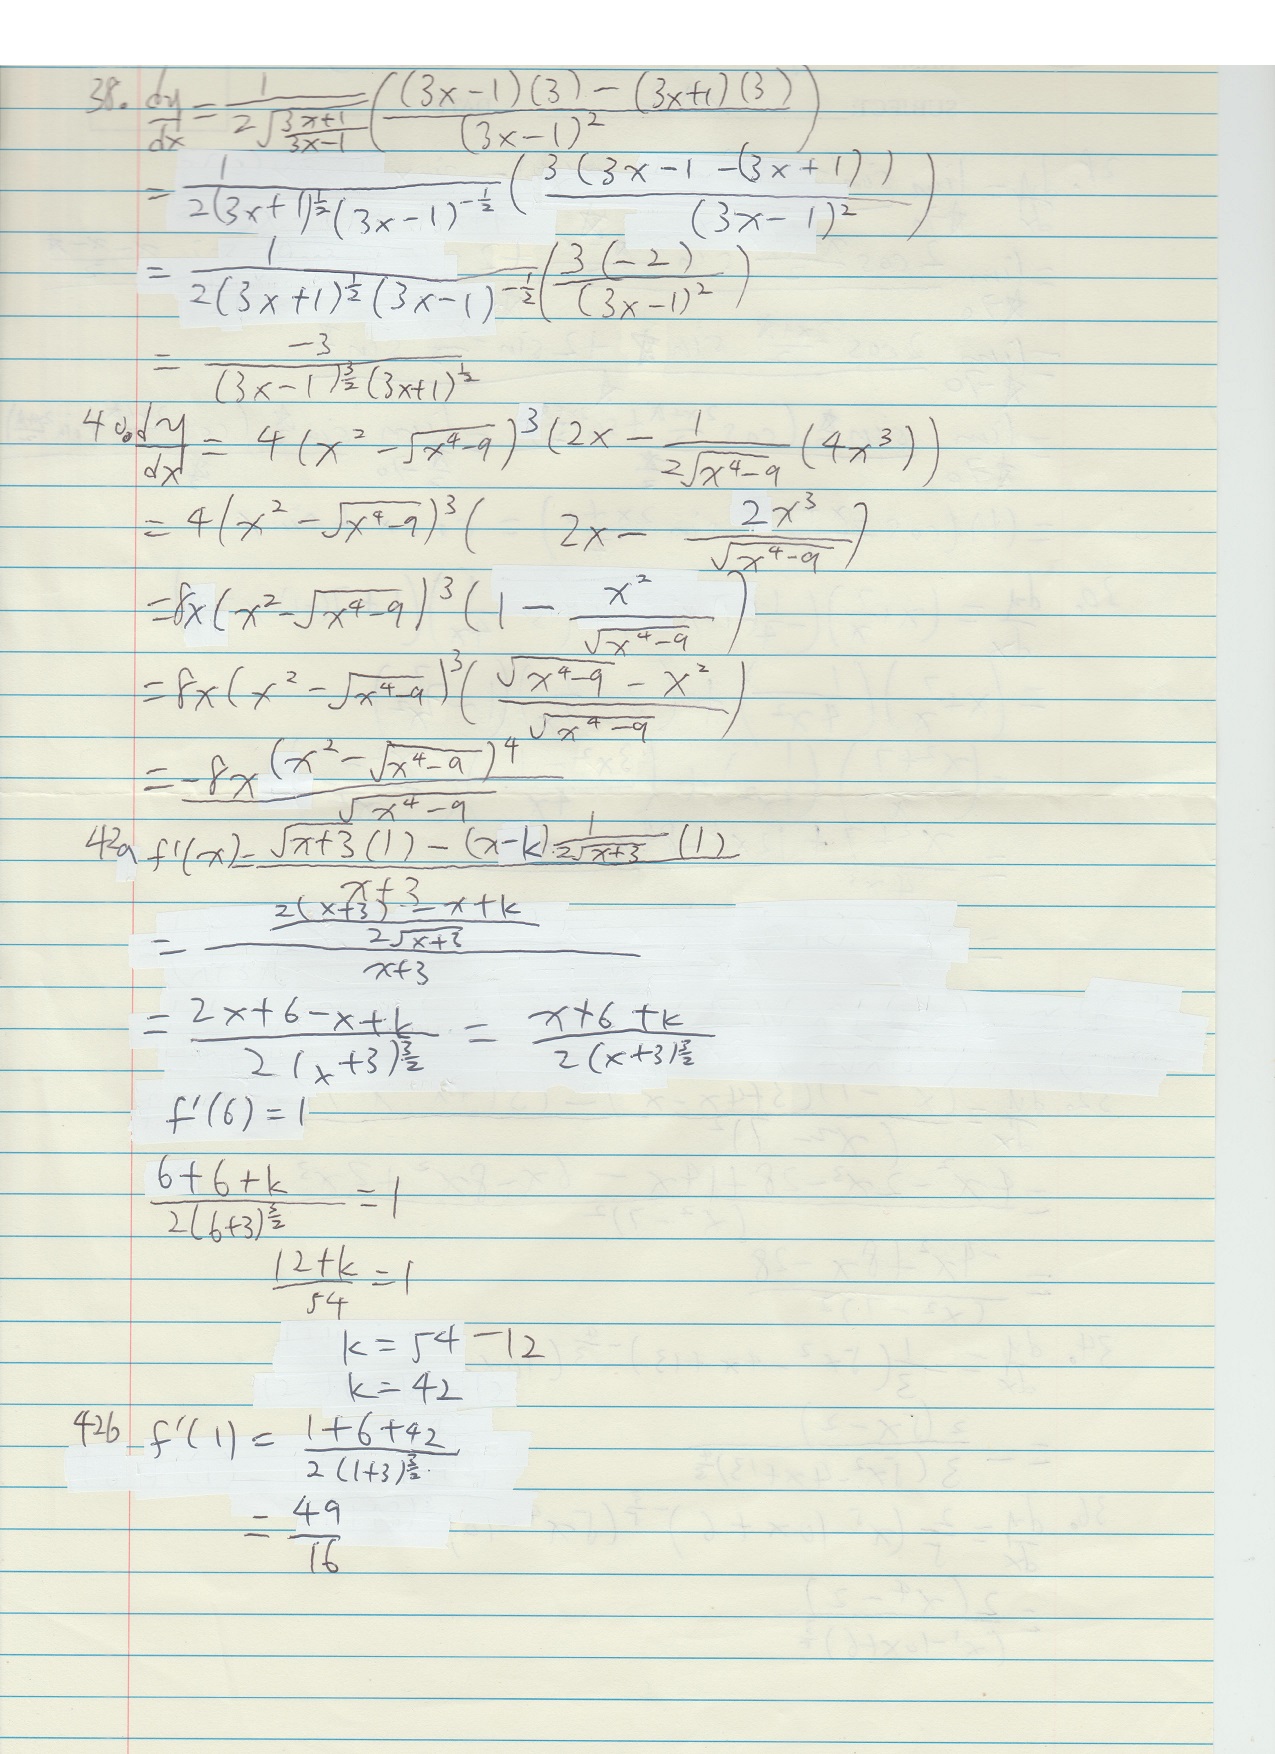 38. dy/dx = 1/(2√((3x+1)/(3x-1))) (((3x-1)(3) - (3x+1)(3))/(3x-1)²)
= 1/(2(3x+1)^(1/2)(3x-1)^(-1/2)) (3(3x-1-(3x+1))/(3x-1)²)
= 1/(2(3x+1)^(1/2)(3x-1)^(-1/2)) (3(-2)/(3x-1)²)
= -3/((3x-1)^(3/2)(3x+1)^(1/2))
40. dy/dx = 4(x² - √(x⁴-9))³(2x - 1/(2√(x⁴-9)) (4x³))
= 4(x² - √(x⁴-9))³(2x - 2x³/√(x⁴-9))
= 8x(x² - √(x⁴-9))³(1 - x²/√(x⁴-9))
= 8x(x² - √(x⁴-9))³((√(x⁴-9) - x²)/√(x⁴-9))
= -8x(x² - √(x⁴-9))⁴/√(x⁴-9)
42a f'(x) = (√(x+3)(1) - (x-k)·1/(2√(x+3))(1))/(x+3)
= ((2(x+3) - x+k)/(2√(x+3)))/(x+3)
= (2x+6-x+k)/(2(x+3)^(3/2)) = (x+6+k)/(2(x+3)^(3/2))
f'(6) = 1
(6+6+k)/(2(6+3)^(3/2)) = 1
(12+k)/54 = 1
k = 54 - 12
k = 42
42b f'(1) = (1+6+42)/(2(1+3)^(3/2))
= 49/16